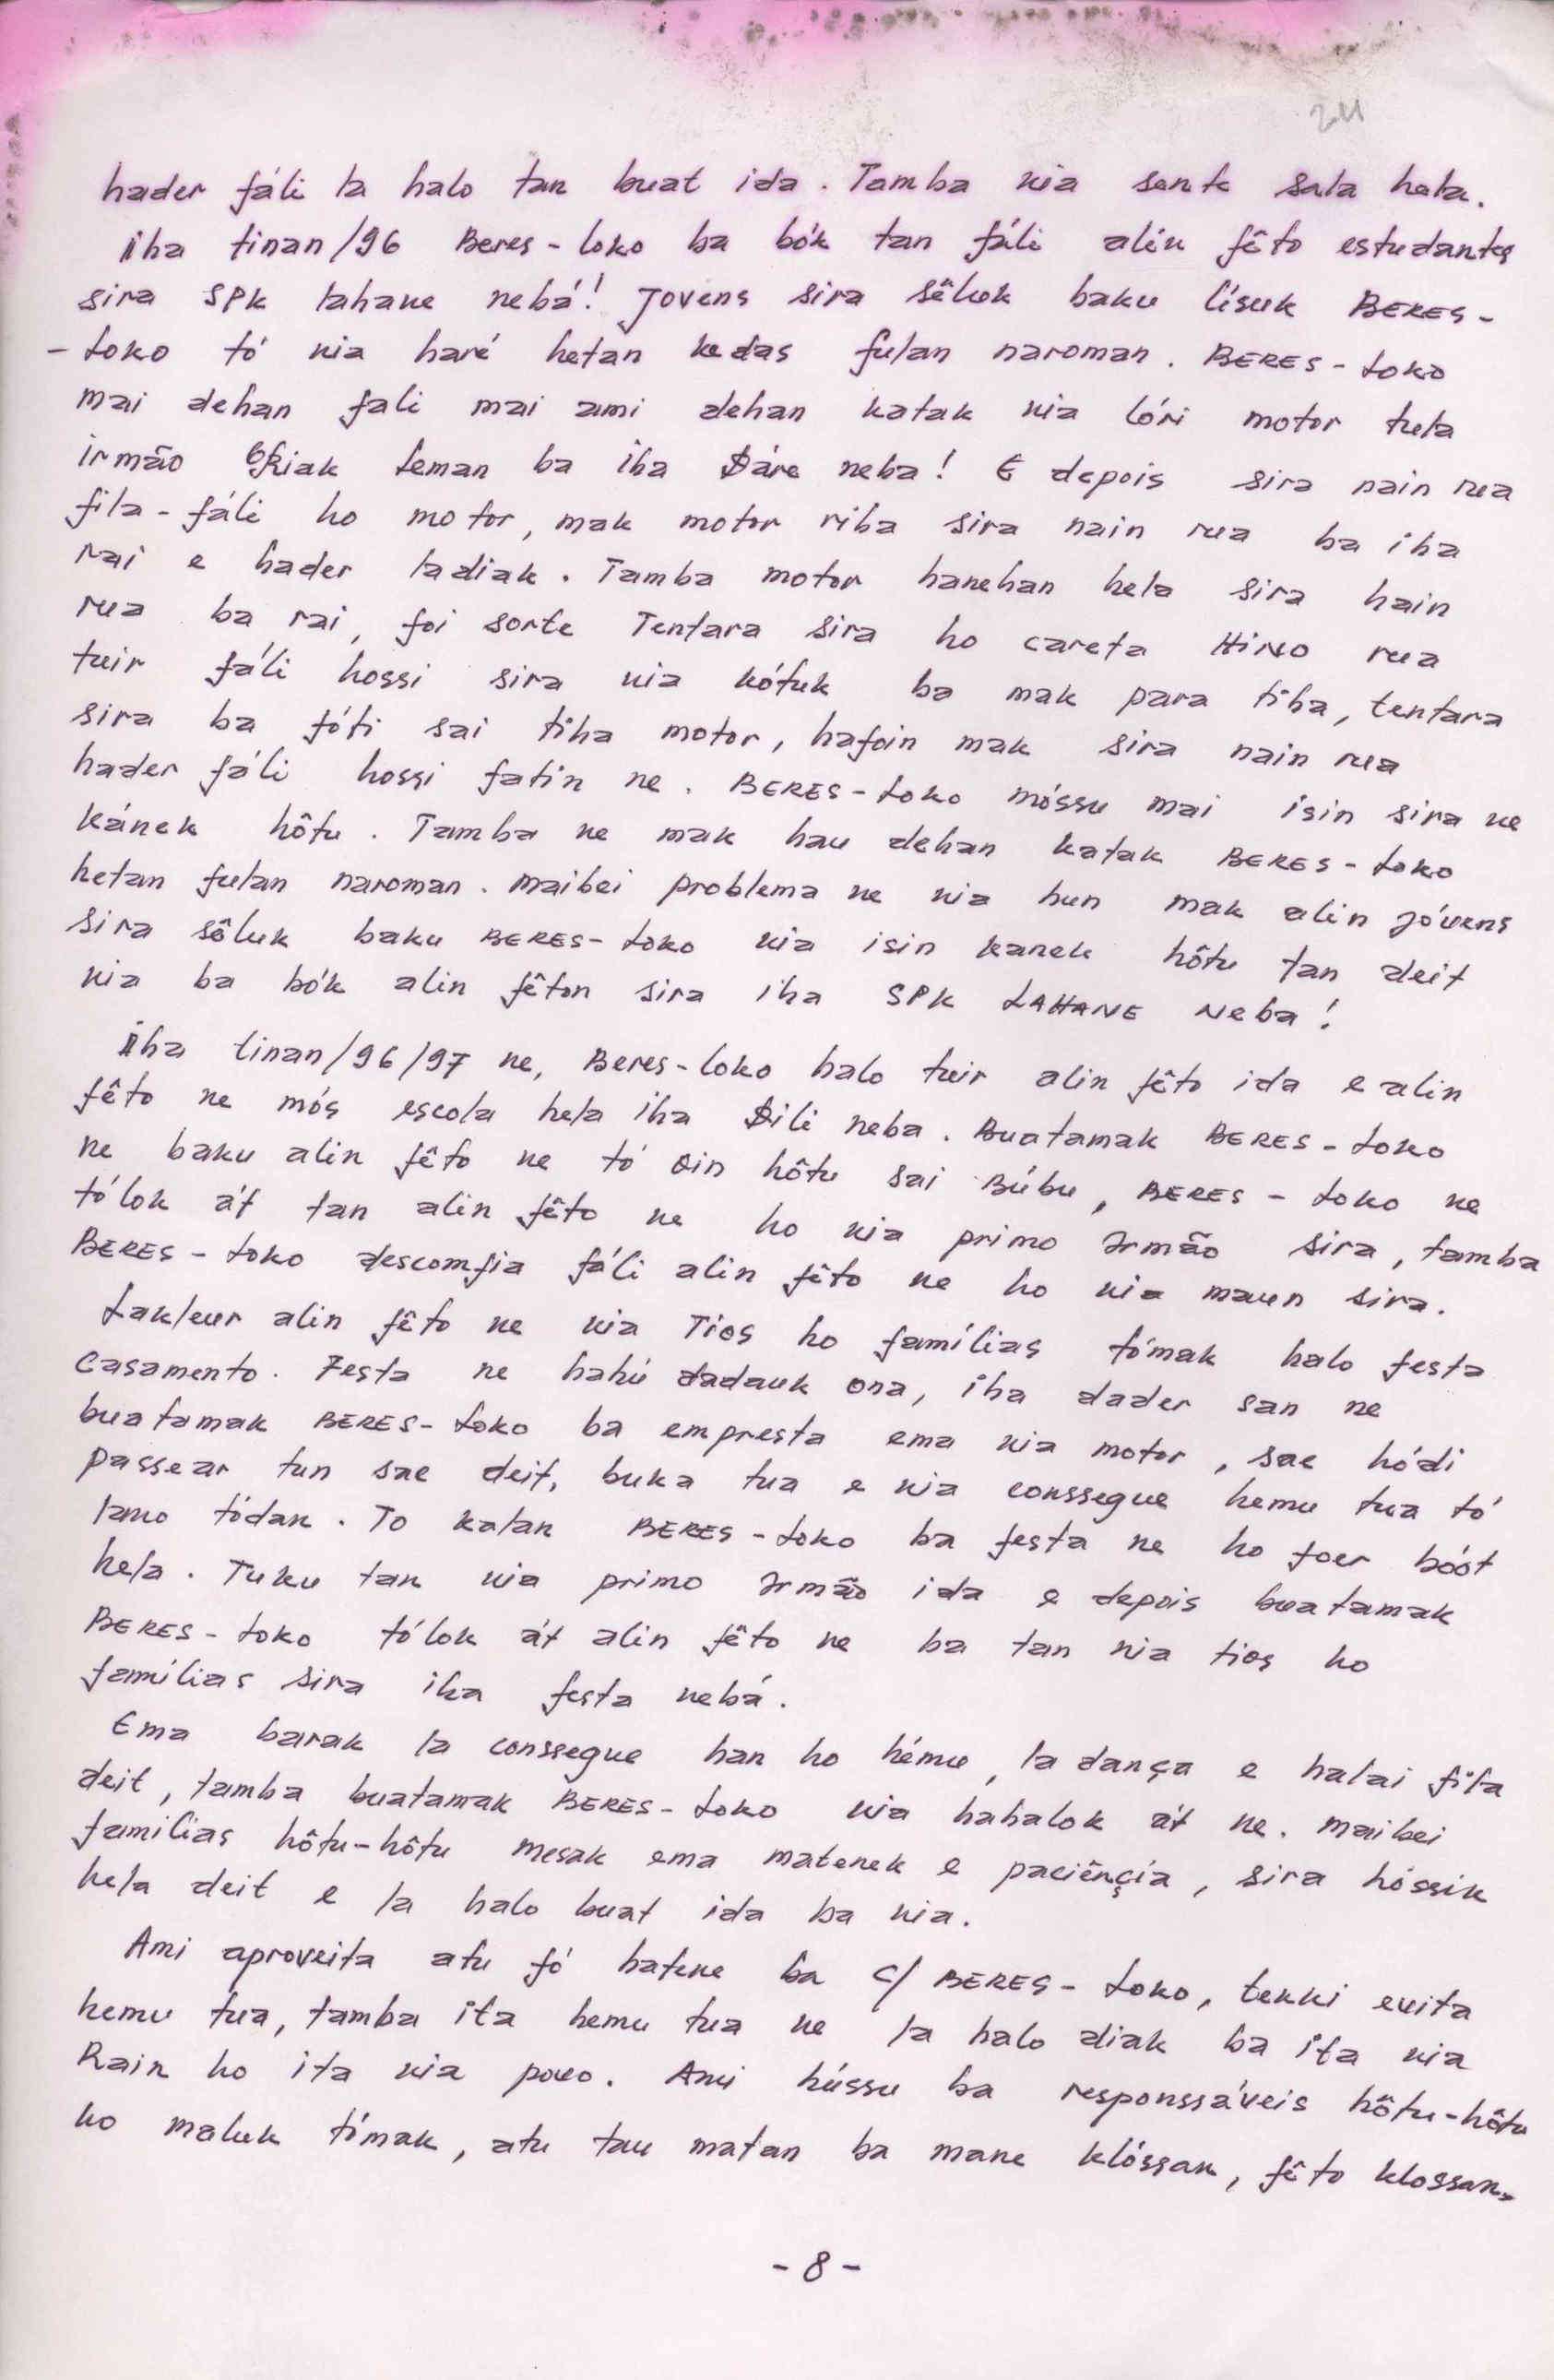 241
hader fáli la halo tan buat ida. Tamba nia sente sala hela.
Iha tinan/96 Beres-loko ba bók tan fáli alin fêto estudantes
sira SPK lahane nebá! Jovens sira sêluk baku lísuk BERES-
-Loko tó nia haré hetan kedas fulan naroman. BERES-Loko
mai dehan fali mai ami dehan katak nia lóri motor tula
irmão Kiak Leman ba iha Dáre neba! E depois sira nain rua
fila-fáli ho motor, mak motor riba sira nain rua ba iha
rai e hader ladiak. Tamba motor hanehan hela sira hain
rua ba rai, foi sorte Tentara sira ho careta HINO rua
tuir fáli hossi sira nia kótuk ba mak para tiha, tentara
sira ba fóti sai tiha motor, hafoin mak sira nain rua
hader fáli hossi fatin ne. BERES-Loko móssu mai isin sira ne
kánek hôtu. Tamba ne mak hau dehan katak BERES-Loko
hetan fulan naroman. Maibei problema ne nia hun mak alin jóvens
sira sôluk baku BERES-Loko nia isin kanek hôtu tan deit
nia ba bók alin fêton sira iha SPK LAHANE Neba!
Iha tinan/96/97 ne, Beres-loko halo tuir alin fêto ida e alin
fêto ne mós escola hela iha Dili neba. Buatamak BERES-Loko
ne baku alin fêto ne tó oin hôtu sai Búbu, BERES-Loko ne
tólok át tan alin fêto ne ho nia primo Irmão sira, tamba
BERES-Loko descomfia fáli alin fêto ne ho nia maun sira.
Lakleur alin fêto ne nia Tios ho famílias tómak halo festa
Casamento. Festa ne hahú dadauk ona, iha dader san ne
buatamak BERES-Loko ba empresta ema nia motor, sae hódi
passear tun sae deit, buka tua e nia conssegue hemu tua tó
lano tódan. To kalan BERES-Loko ba festa ne ho foer bóót
hela. Tuku tan nia primo Irmão ida e depois buatamak
BERES-Loko tólok át alin fêto ne ba tan nia tios ho
famílias sira iha festa nebá.
Ema barak la conssegue han ho hému, la dança e halai fila
deit, tamba buatamak BERES-Loko nia hahalok át ne. Maibei
familias hôtu-hôtu mesak ema matenek e paciênçia, sira hóssik
hela deit e la halo buat ida ba nia.
Ami aproveita atu fó hatene ba C/ BERES-Loko, tenki evita
hemu tua, tamba ita hemu tua ne la halo diak ba ita nia
Rain ho ita nia povo. Ami hússu ba responssáveis hôtu-hôtu
ho maluk tómak, atu tau matan ba mane klóssan, fêto klossan,
-8-